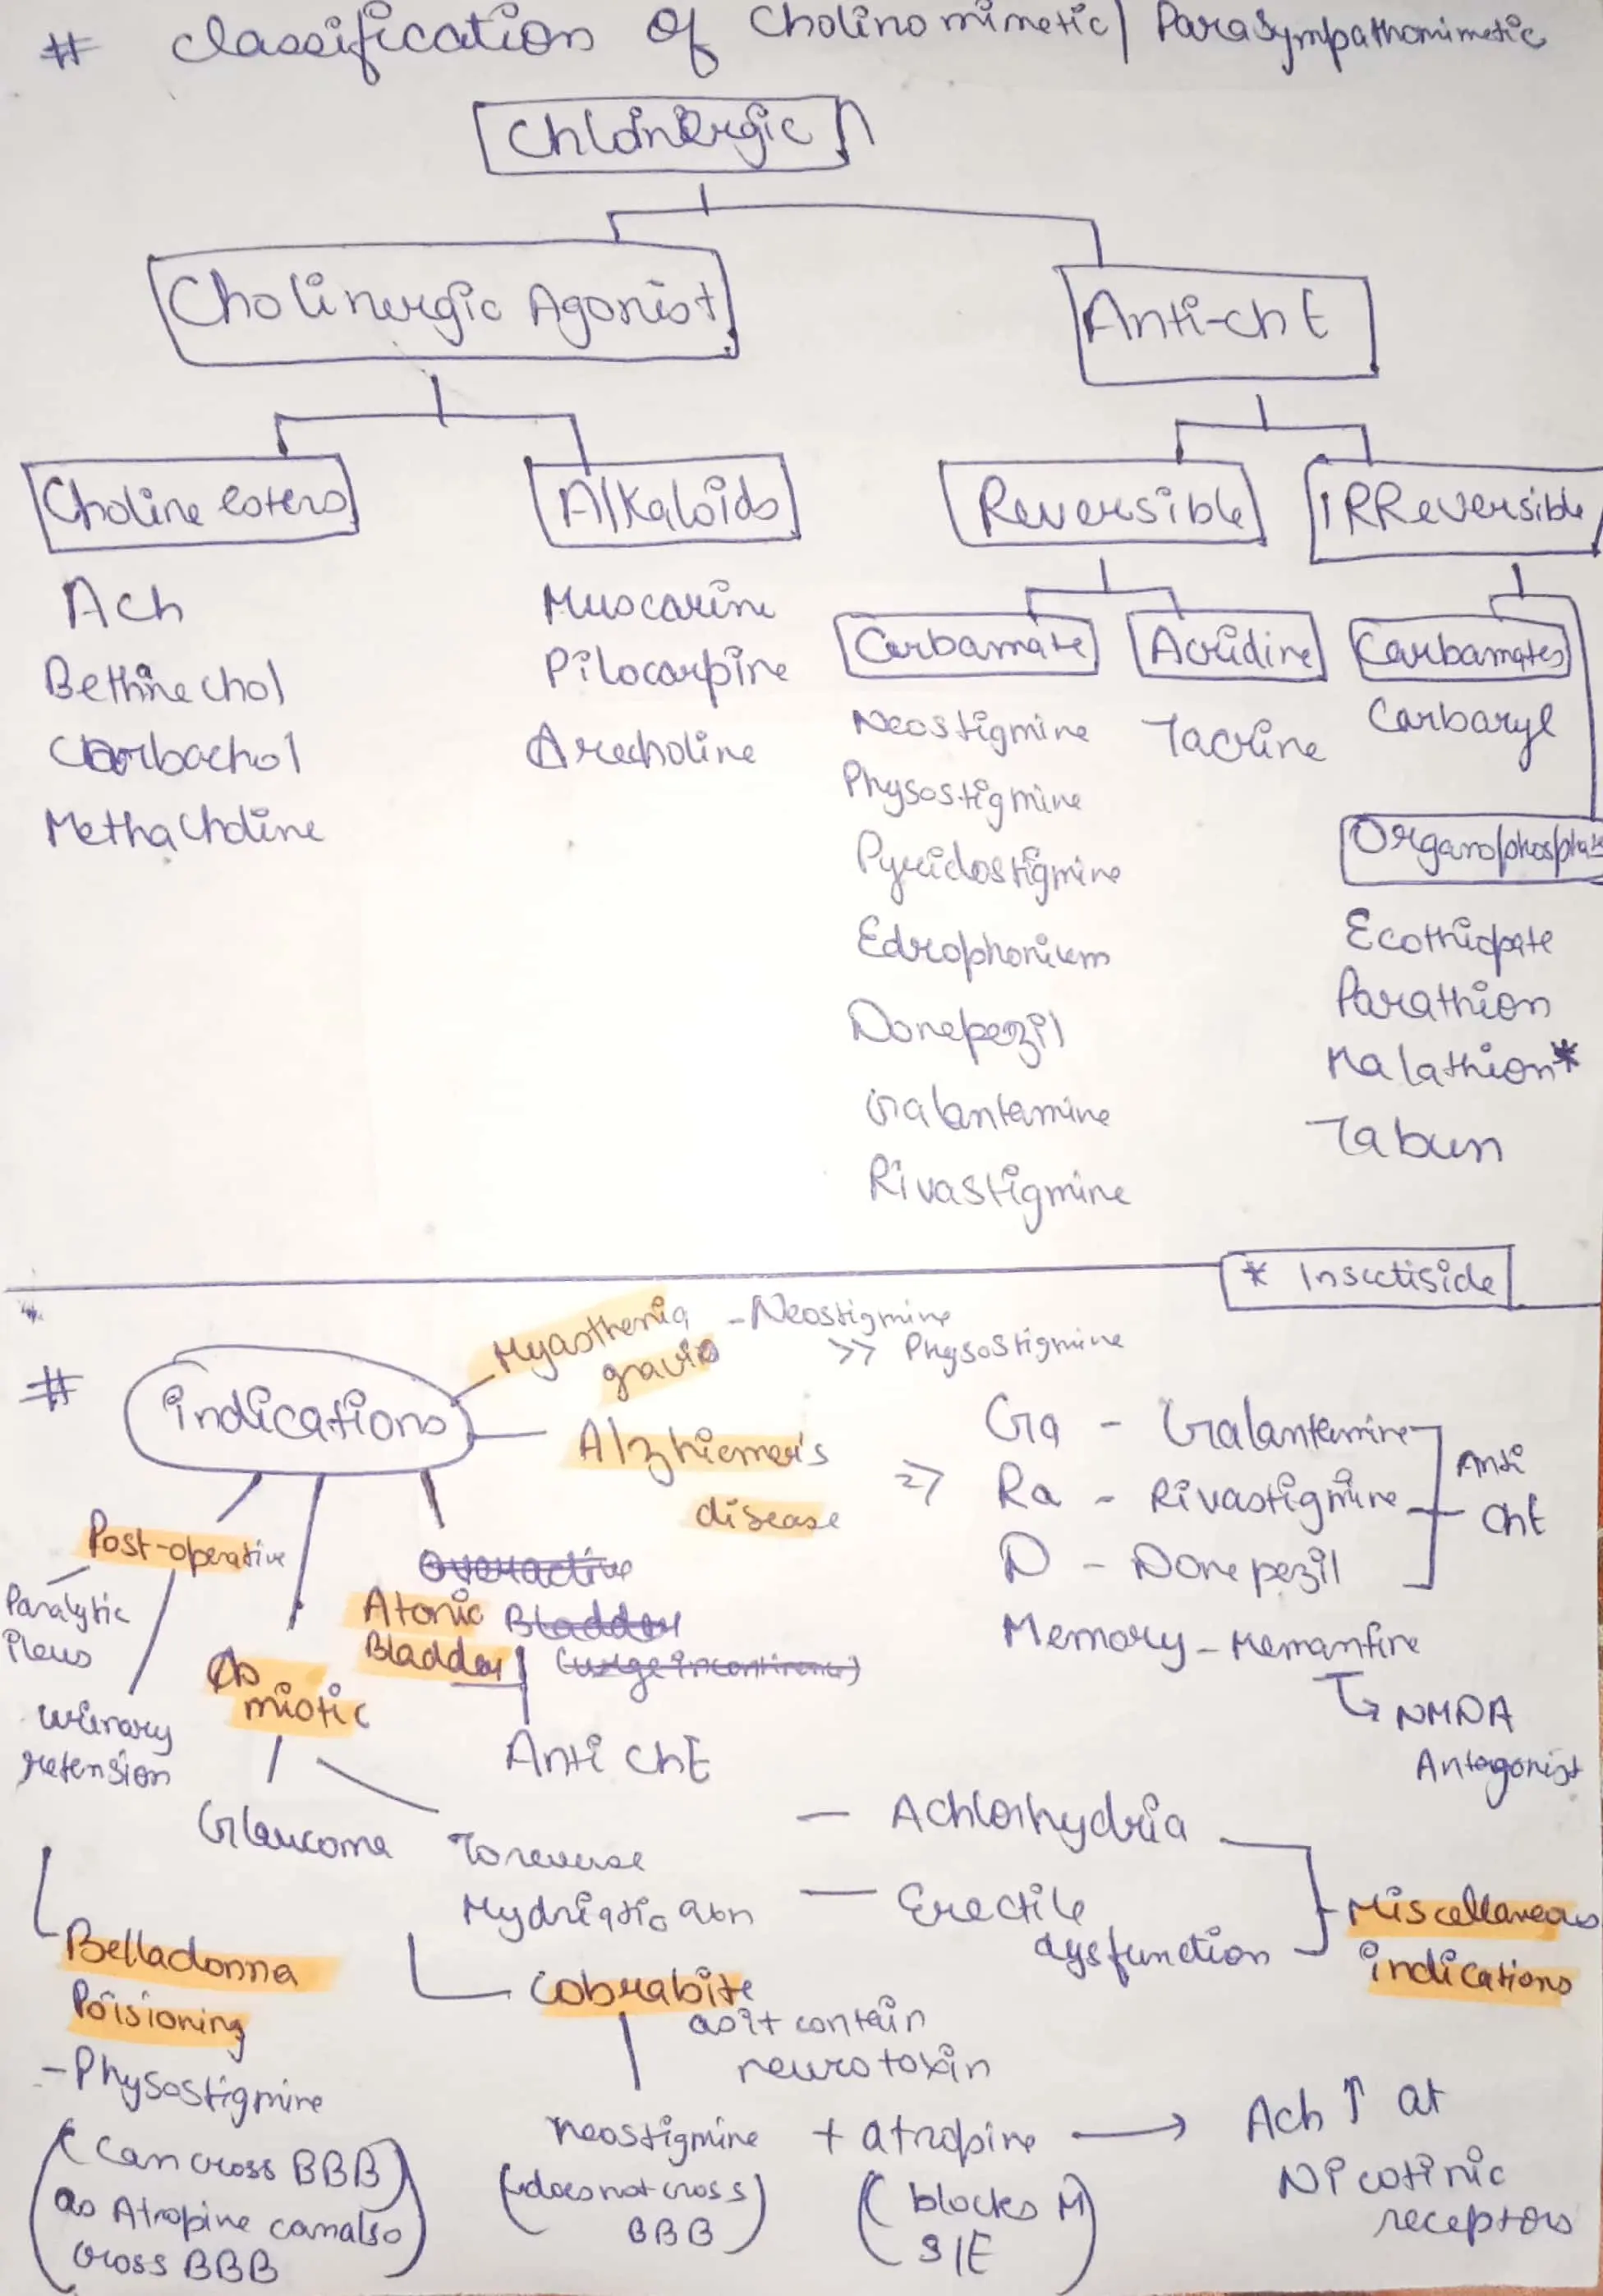 # Classification of Cholinomimetic/ Parasympathomimetic
Cholinergic
Cholinergic Agonist
Anti-chE
Choline esters
Alkaloids
Reversible
IRReversible
Ach
Bethnechol
Carbachol
Methacholine
Muscarine
Pilocarpine
Arecholine
Carbamate
Neostigmine
Physostigmine
Pyridostigmine
Edrophonium
Donepezil
Galantamine
Rivastigmine
Acridine
Tacrine
Carbamates
Carbaryl
Organophosphate
Ecothiopate
Parathion
Malathion*
Tabun
* Insectiside
# indications
Myasthenia gravis
- Neostigmine
>> Physostigmine
Alzhiemer's
disease
=>
Ga - Galantamine
Ra - Rivastigmine
D - Donepezil
Anti
ChE
Memory - Memantine
↳ NMDA
Antagonist
Post-operative
Paralytic
ileus
urinary
retension
As
miotic
Glaucoma
To reverse
Mydriatic
Overactive
Atonic Bladder
Bladder (urge incontinence)
Anti ChE
- Achlorhydria
- Erectile
dysfunction
Miscellaneous
indications
Belladonna
Poisioning
- Physostigmine
(Can cross BBB)
as Atropine can also
cross BBB
Cobrabite
as it contain
neurotoxin
neostigmine + atropine → Ach ↑ at
Nicotinic
receptors
(does not cross
BBB)
(blocks M
S/E)